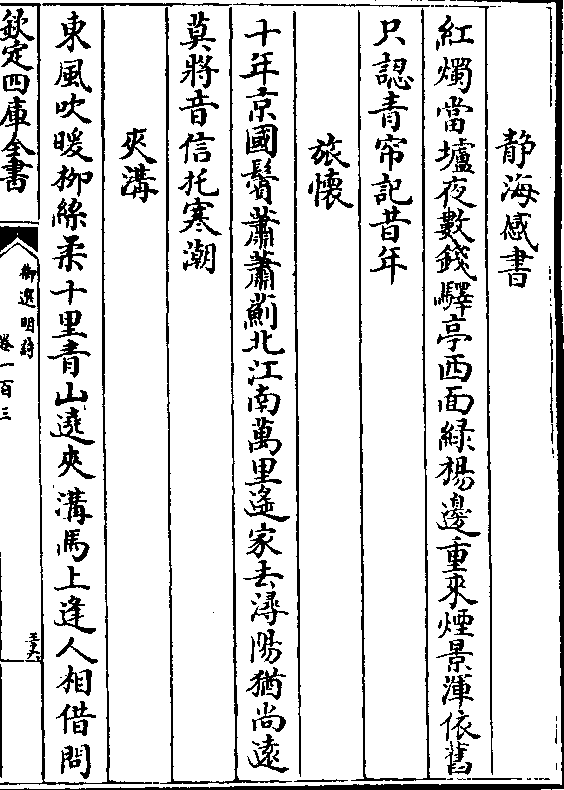 静海感書
紅燭當壚夜數錢驛亭西面緑楊邊重來煙景渾依舊
只認青帘記昔年
旅懷
十年京國鬢蕭蕭薊北江南萬里遙家去潯陽猶尚遠
莫將音信托寒潮
夾溝
東風吹暖栁絲柔十里青山遶夾溝馬上逢人相借問
欽定四庫全書
御選明詩
卷一百三